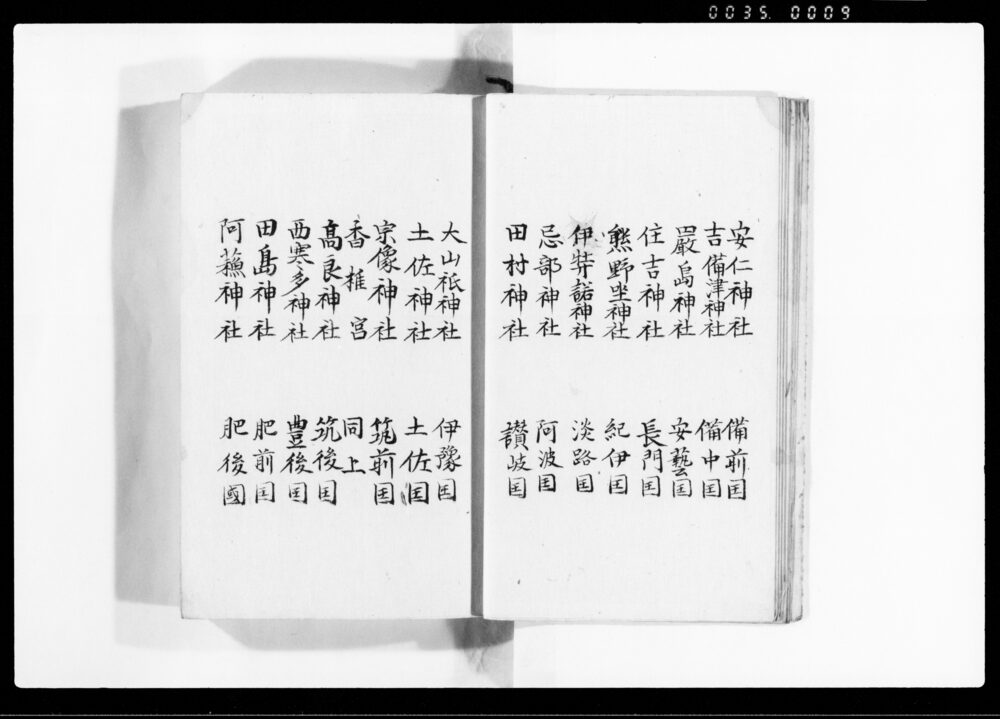 0035. 0009
安仁神社　備前囯
吉備津神社　備中囯
嚴島神社　安藝囯
住吉神社　長門囯
熊野坐神社　紀伊囯
伊弉諾神社　淡路囯
忌部神社　阿波囯
田村神社　讃岐囯
大山祇神社　伊豫囯
土佐神社　土佐囯
宗像神社　筑前囯
香椎宮　同上
高良神社　筑後囯
西寒多神社　豊後囯
田島神社　肥前囯
阿蘓神社　肥後國